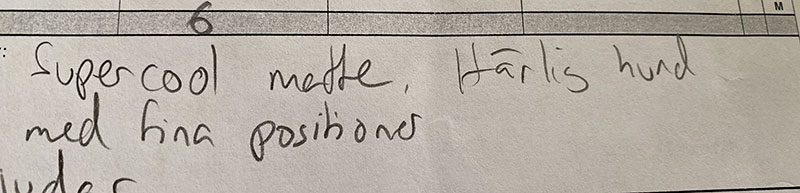 M
6
Supercool matte. Härlig hund
med fina positioner